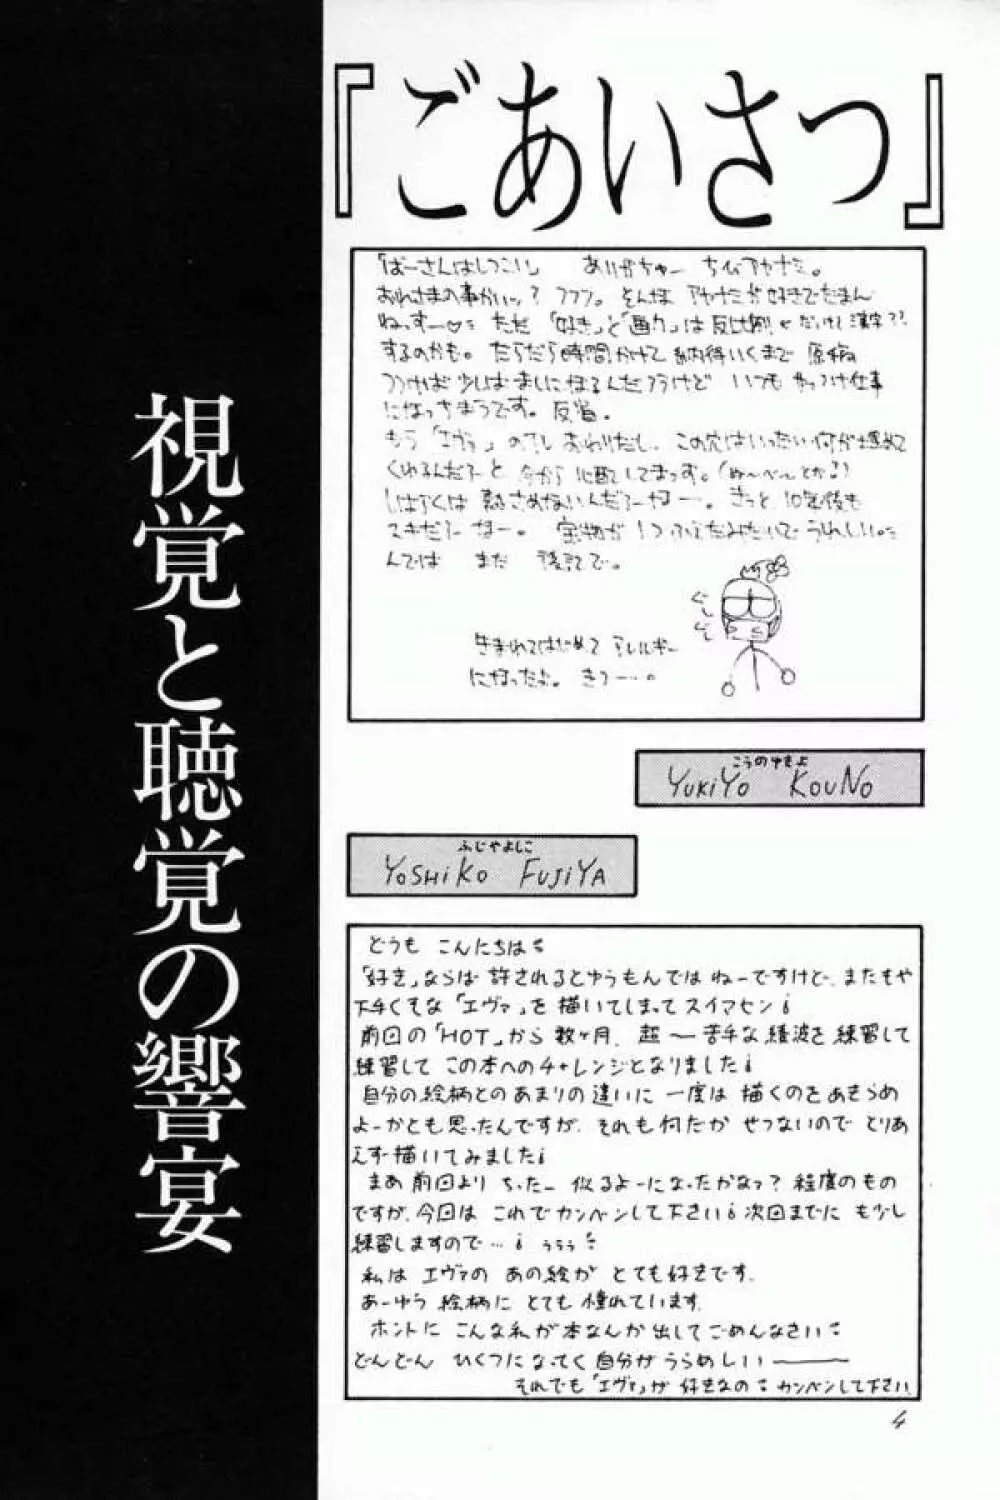 『ごあいさつ』
視覚と聴覚の響宴
「ばーさんはしつこい」 ありがちゅー ちびアヤナミ。
おれさまの事かいッ? フフフ。そんな アヤナミが好きでたまん
ねっすー♡ ただ「好き」と「画力」は反比例 だっけし漢字??
するのかも。だらだら時間かけて 納得いくまで 原稿
フフけば 少しはましになるんだろうけど いつも やっつけ仕事
になっちまうです。反省。
もう「エヴァ」のTV おわりだし、この穴はいったい何が埋めて
くれるんだろーと 今から 心配してまっす。(ぬ〜べ〜とかる)
しばらくは 熱さめないんだろーなー…。きっと 10年後も
スキだろーなー。 宝物が 1つふえたみたいで うれしい。
んでは また 後記で。
ぐし
ぐし
生まれてはじめて アレルギー
になったよ。 きつー…。
こうのゆきよ
YUKIYO KOUNO
ふじやよしこ
YOSHIKO FUJIYA
どうも こんにちは
「好き」ならば 許されるとゆうもんでは ねーですけど、またもや
下手くそな「エヴァ」を 描いてしまって スイマセン
前回の「HOT」から 数ヶ月、超〜苦手な 綾波を 練習して
練習して この本へのチャレンジとなりました
自分の絵柄とのあまりの違いに 一度は 描くのをあきらめ
よーかとも 思ったんですが、それも何だか せつないので とりあ
えず 描いてみました
まぁ 前回より ちったー 似るよーになったかなっ? 程度のもの
ですが、今回は これで カンベンして下さい 次回までに もう少し
練習しますので… ううう
私は エヴァの あの絵が とても好きです。
あーゆう 絵柄に とても 憧れています。
ホントに こんな私が 本なんか 出して ごめんなさい
どんどん ひくつになってく 自分が うらめしい———
それでも「エヴァ」が 好きなの カンベンして下さい
4